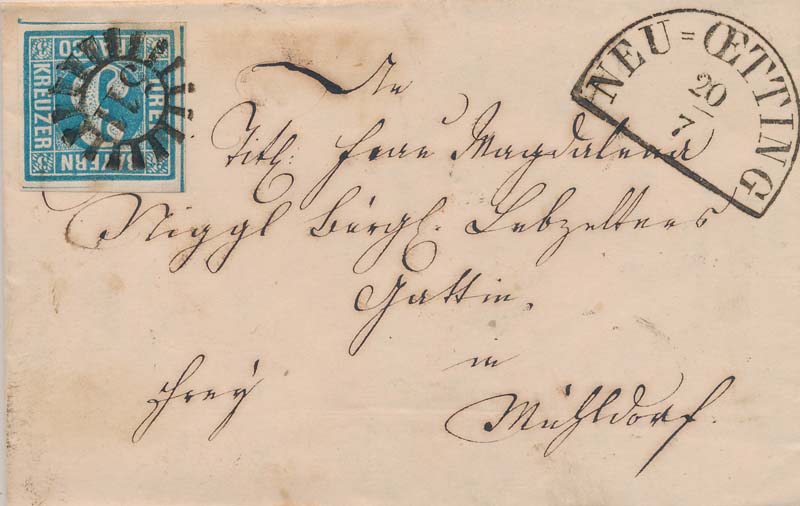 BAYERN
KREUZER
FRANCO
NEU=ŒTTING
20
7
An
Titl: Frau Magdalena
Niggl bürgl. Lebzelters
Gattin.
in
frey
Mühldorf.